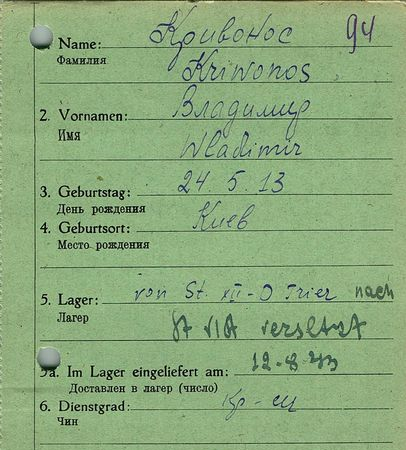 Name: Кривонос 94
Фамилия
Kriwonos
2. Vornamen: Владимир
Имя
Wladimir
3. Geburtstag: 24. 5. 13
День рождения
4. Geburtsort: Киев
Место рождения
5. Lager: von St. XII-D Trier nach
Лагер
St VIA versetzt
5a. Im Lager eingeliefert am: 12-8-43
Доставлен в лагер (число)
6. Dienstgrad: Кр-ец
Чин